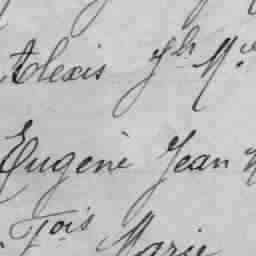 Alexis Jh M.
Eugène Jean
Fois Marie